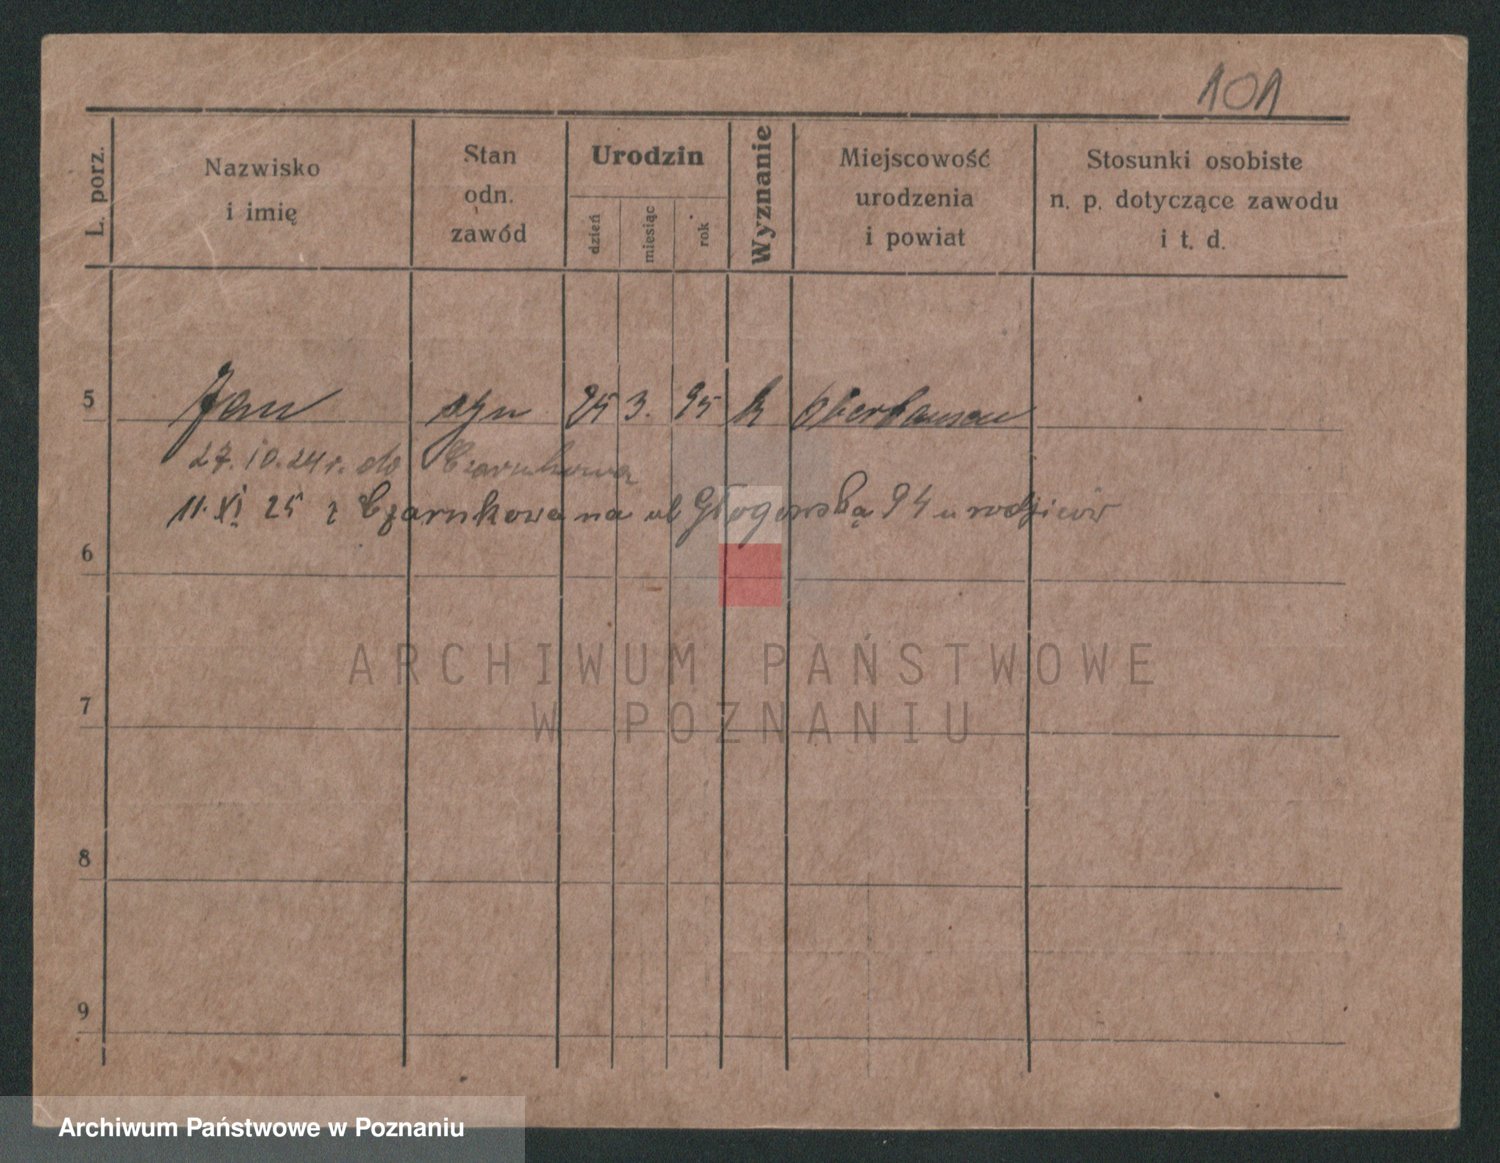 101
L. porz.
Nazwisko
i imię
Stan
odn.
zawód
Urodzin
dzień
miesiąc
rok
Wyznanie
Miejscowość
urodzenia
i powiat
Stosunki osobiste
n. p. dotyczące zawodu
i t. d.
5 Jan syn 25 3. 95 k Oberhausen
27.10.24 r. do Czarnkowa
11. XI 25 z Czarnkowa na ul Głogowską 94 u rodziców
6
7
8
9
ARCHIWUM PAŃSTWOWE
W POZNANIU
Archiwum Państwowe w Poznaniu